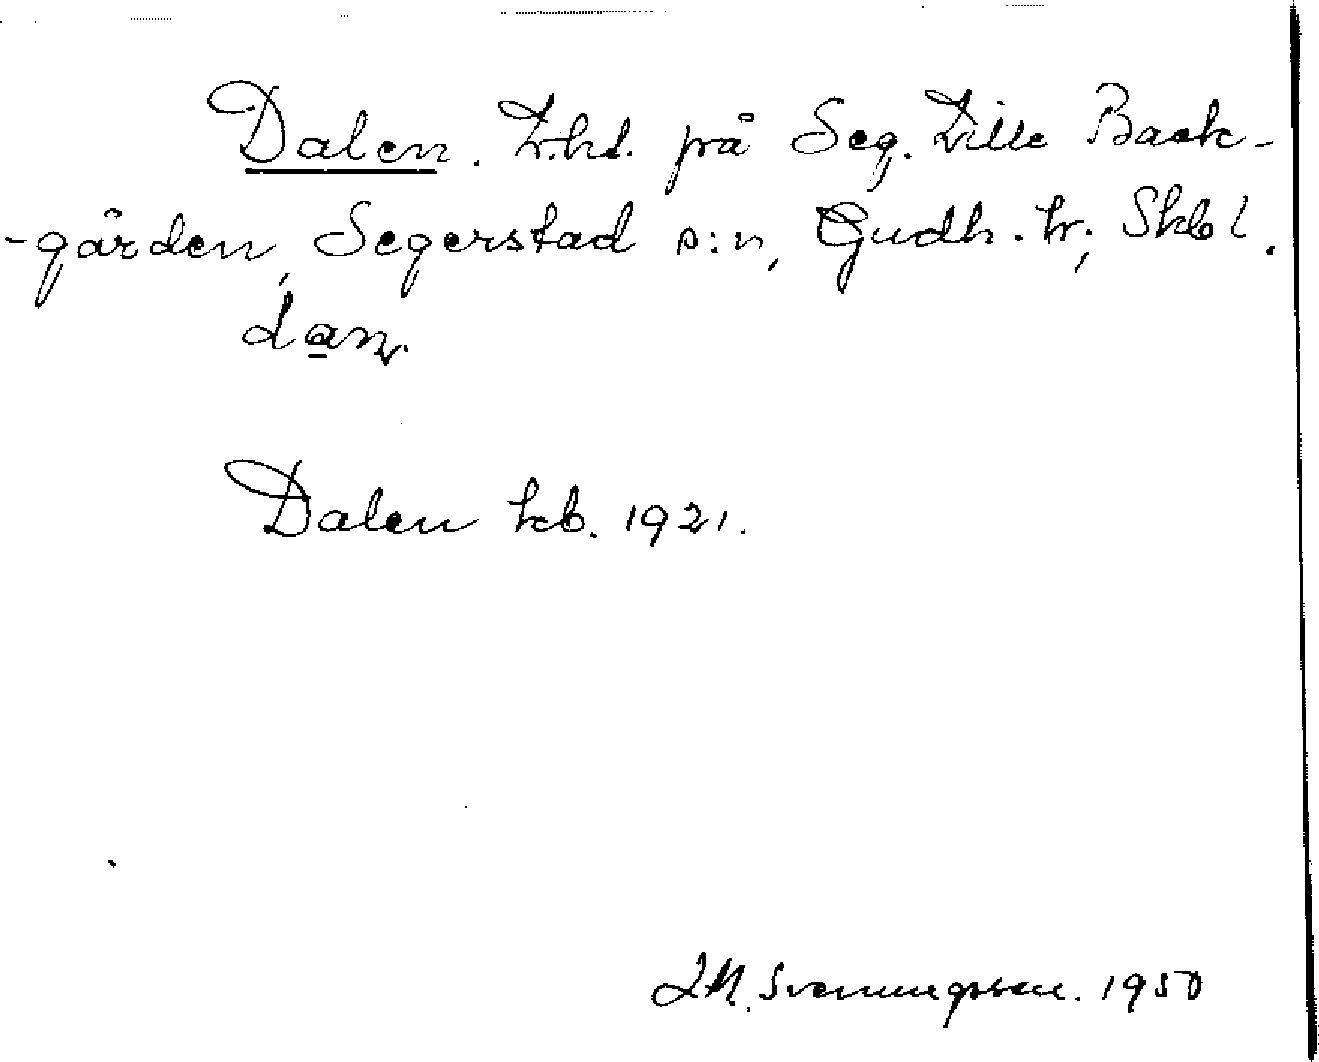 Dalen. L:hd. på Seg. Lille Back-
-gården, Segerstad s:n, Gudh. hr; Skbl.
dan.
Dalen kb. 1921.
J.M. Svenningsson. 1950